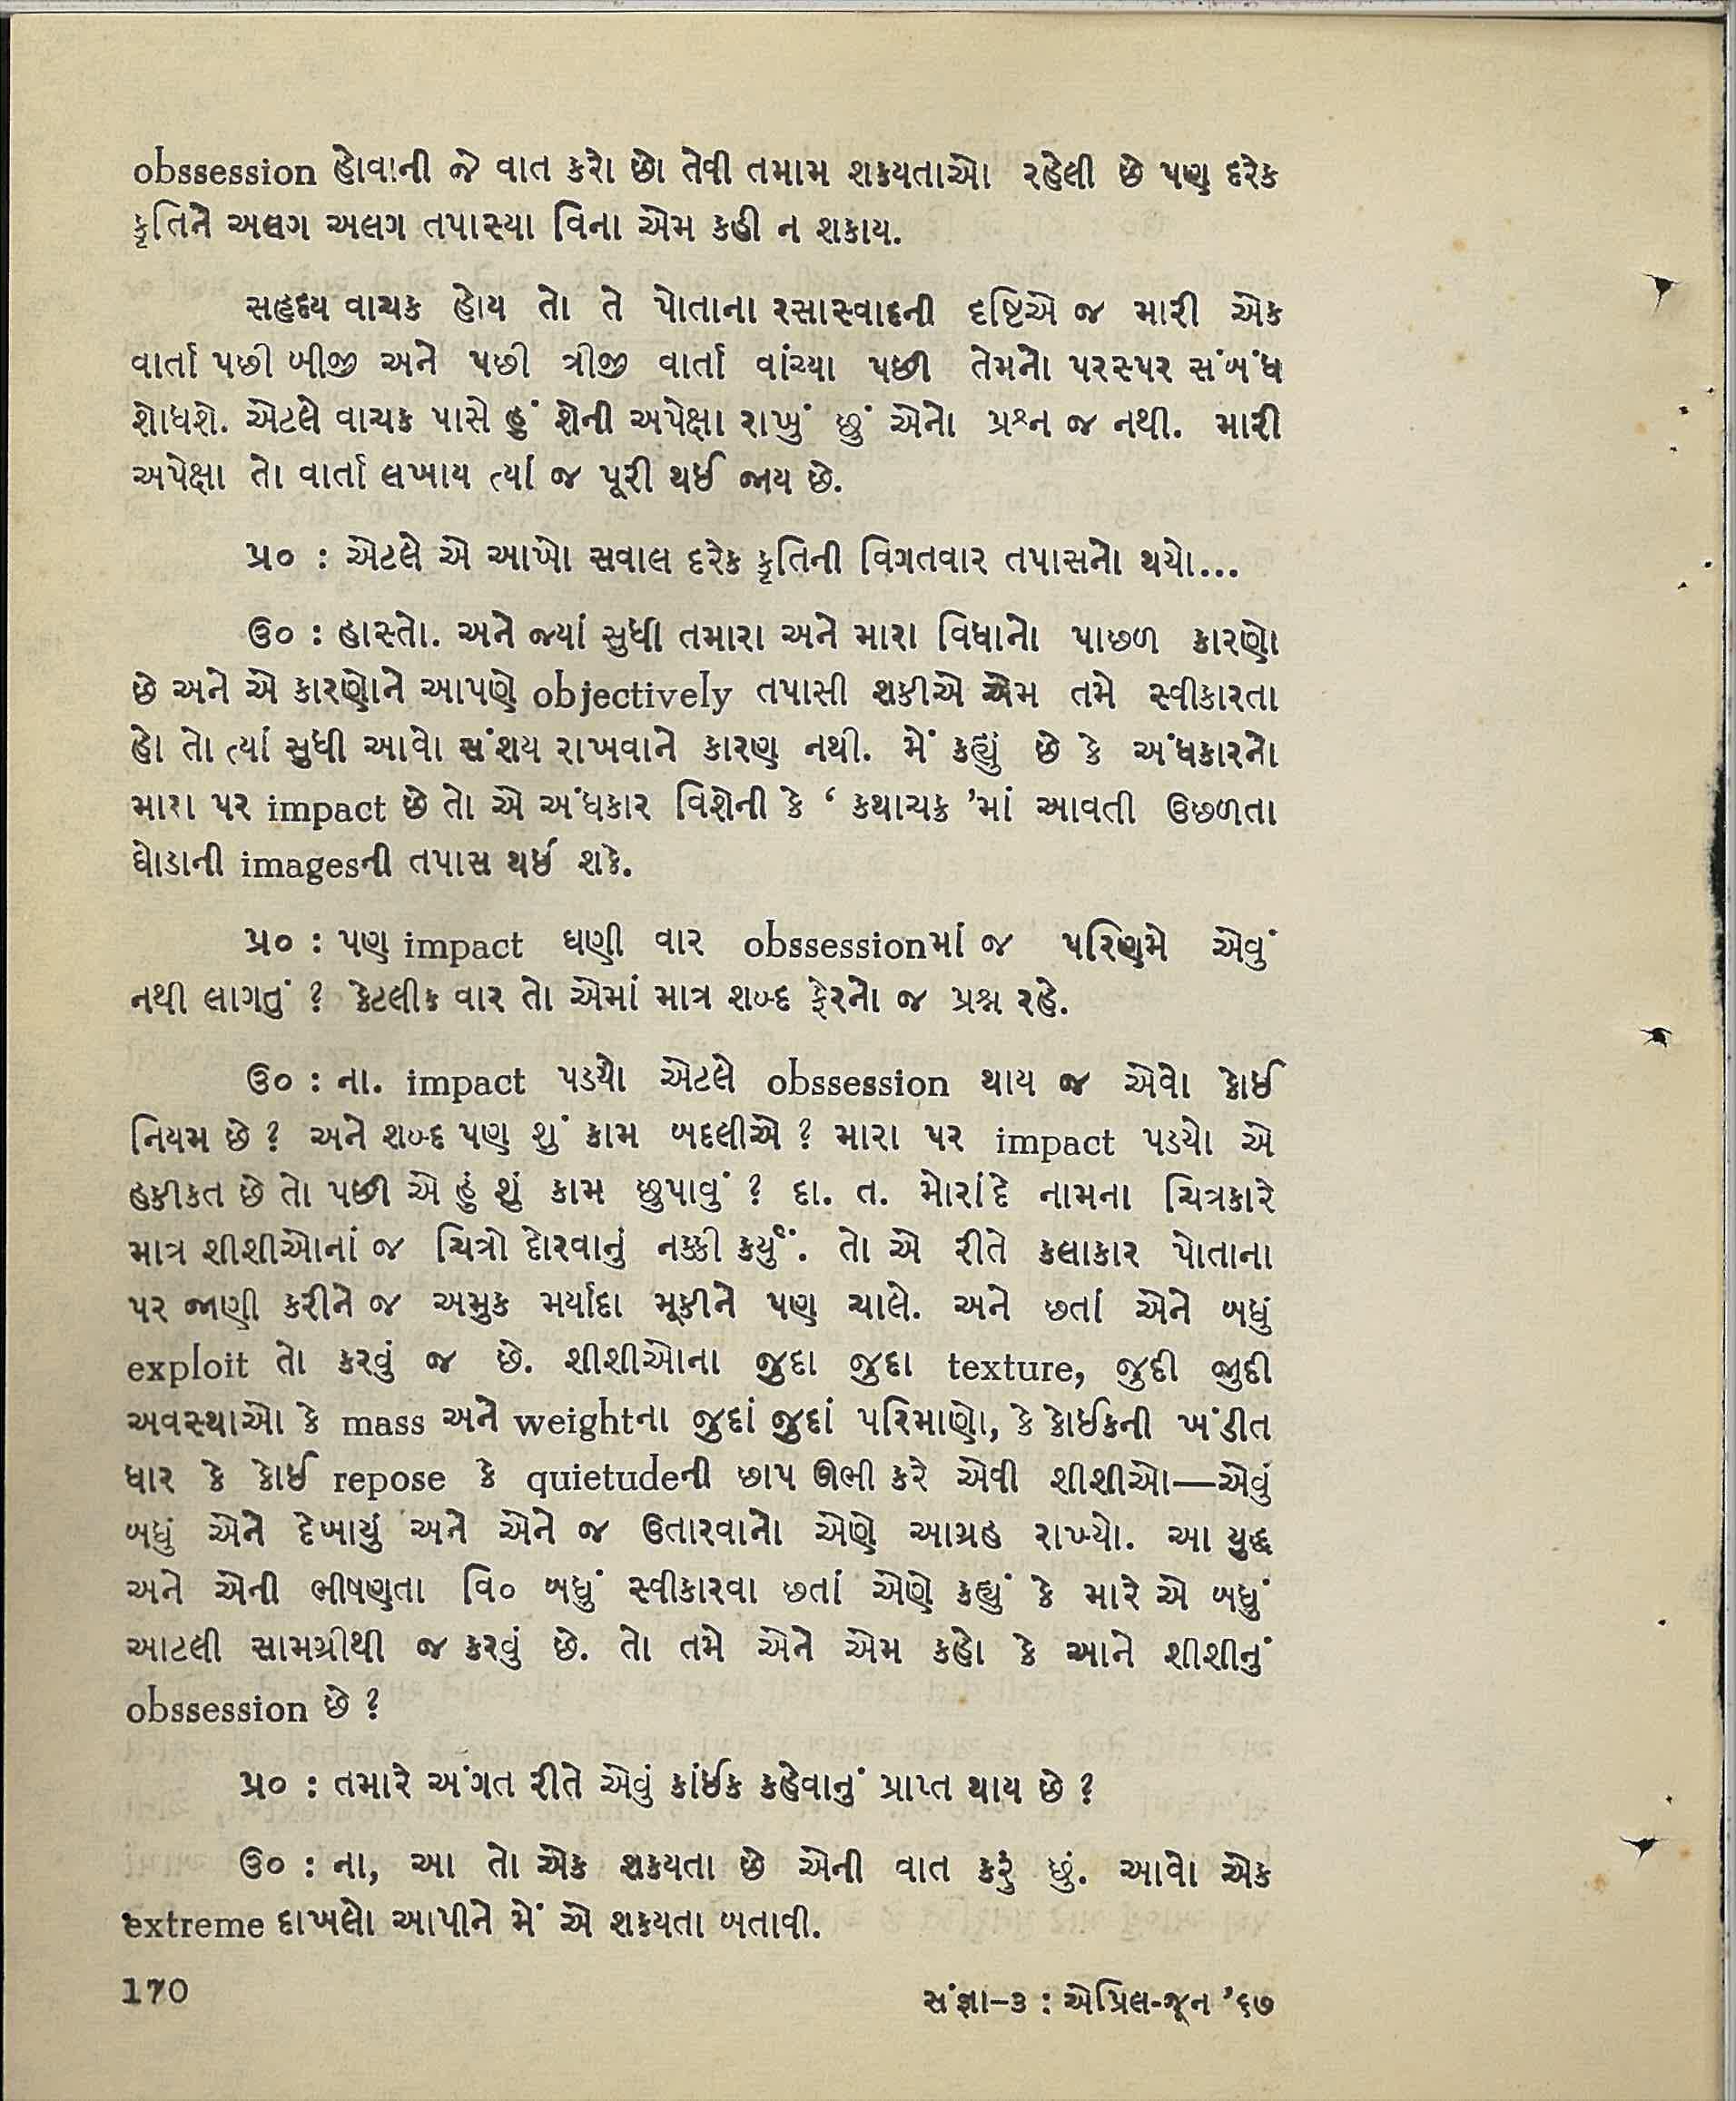 obssession હોવાની જે વાત કરો છો તેવી તમામ શકયતાઓ રહેલી છે પણ દરેક
કૃતિને અલગ અલગ તપાસ્યા વિના એમ કહી ન શકાય.
સહૃદય વાચક હોય તો તે પોતાના રસાસ્વાદની દૃષ્ટિએ જ મારી એક
વાર્તા પછી બીજી અને પછી ત્રીજી વાર્તા વાંચ્યા પછી તેમનો પરસ્પર સંબંધ
શોધશે. એટલે વાચક પાસે હું શેની અપેક્ષા રાખું છું એનો પ્રશ્ન જ નથી. મારી
અપેક્ષા તો વાર્તા લખાય ત્યાં જ પૂરી થઈ જાય છે.
પ્ર૦ : એટલે એ આખો સવાલ દરેક કૃતિની વિગતવાર તપાસનો થયો...
ઉ૦ : હાસ્તો. અને જ્યાં સુધી તમારા અને મારા વિધાનો પાછળ કારણો
છે અને એ કારણોને આપણે objectively તપાસી શકીએ એમ તમે સ્વીકારતા
હો તો ત્યાં સુધી આવો સંશય રાખવાને કારણ નથી. મેં કહ્યું છે કે અંધકારનો
મારા પર impact છે તો એ અંધકાર વિશેની કે ‘ કથાચક્ર ’માં આવતી ઉછળતા
ઘોડાની imagesની તપાસ થઈ શકે.
પ્ર૦ : પણ impact ઘણી વાર obssessionમાં જ પરિણમે એવું
નથી લાગતું ? કેટલીક વાર તો એમાં માત્ર શબ્દ ફેરનો જ પ્રશ્ન રહે.
ઉ૦ : ના. impact પડયો એટલે obssession થાય જ એવો કોઈ
નિયમ છે ? અને શબ્દ પણ શું કામ બદલીએ ? મારા પર impact પડયો એ
હકીકત છે તો પછી એ હું શું કામ છુપાવું ? દા. ત. મોરાંદે નામના ચિત્રકારે
માત્ર શીશીઓનાં જ ચિત્રો દોરવાનું નક્કી કર્યું. તો એ રીતે કલાકાર પોતાના
પર જાણી કરીને જ અમુક મર્યાદા મૂકીને પણ ચાલે. અને છતાં એને બધું
exploit તો કરવું જ છે. શીશીઓના જુદા જુદા texture, જુદી જુદી
અવસ્થાઓ કે mass અને weightના જુદાં જુદાં પરિમાણો, કે કોઈકની ખંડીત
ધાર કે કોઈ repose કે quietudeની છાપ ઊભી કરે એવી શીશીઓ—એવું
બધું એને દેખાયું અને એને જ ઉતારવાનો એણે આગ્રહ રાખ્યો. આ યુદ્ધ
અને એની ભીષણતા વિ૦ બધું સ્વીકારવા છતાં એણે કહ્યું કે મારે એ બધું
આટલી સામગ્રીથી જ કરવું છે. તો તમે એને એમ કહો કે આને શીશીનું
obssession છે ?
પ્ર૦ : તમારે અંગત રીતે એવું કાંઈક કહેવાનું પ્રાપ્ત થાય છે ?
ઉ૦ : ના, આ તો એક શકયતા છે એની વાત કરું છું. આવો એક
extreme દાખલો આપીને મેં એ શકયતા બતાવી.
170
સંજ્ઞા-૩ : એપ્રિલ-જૂન ’૬૭